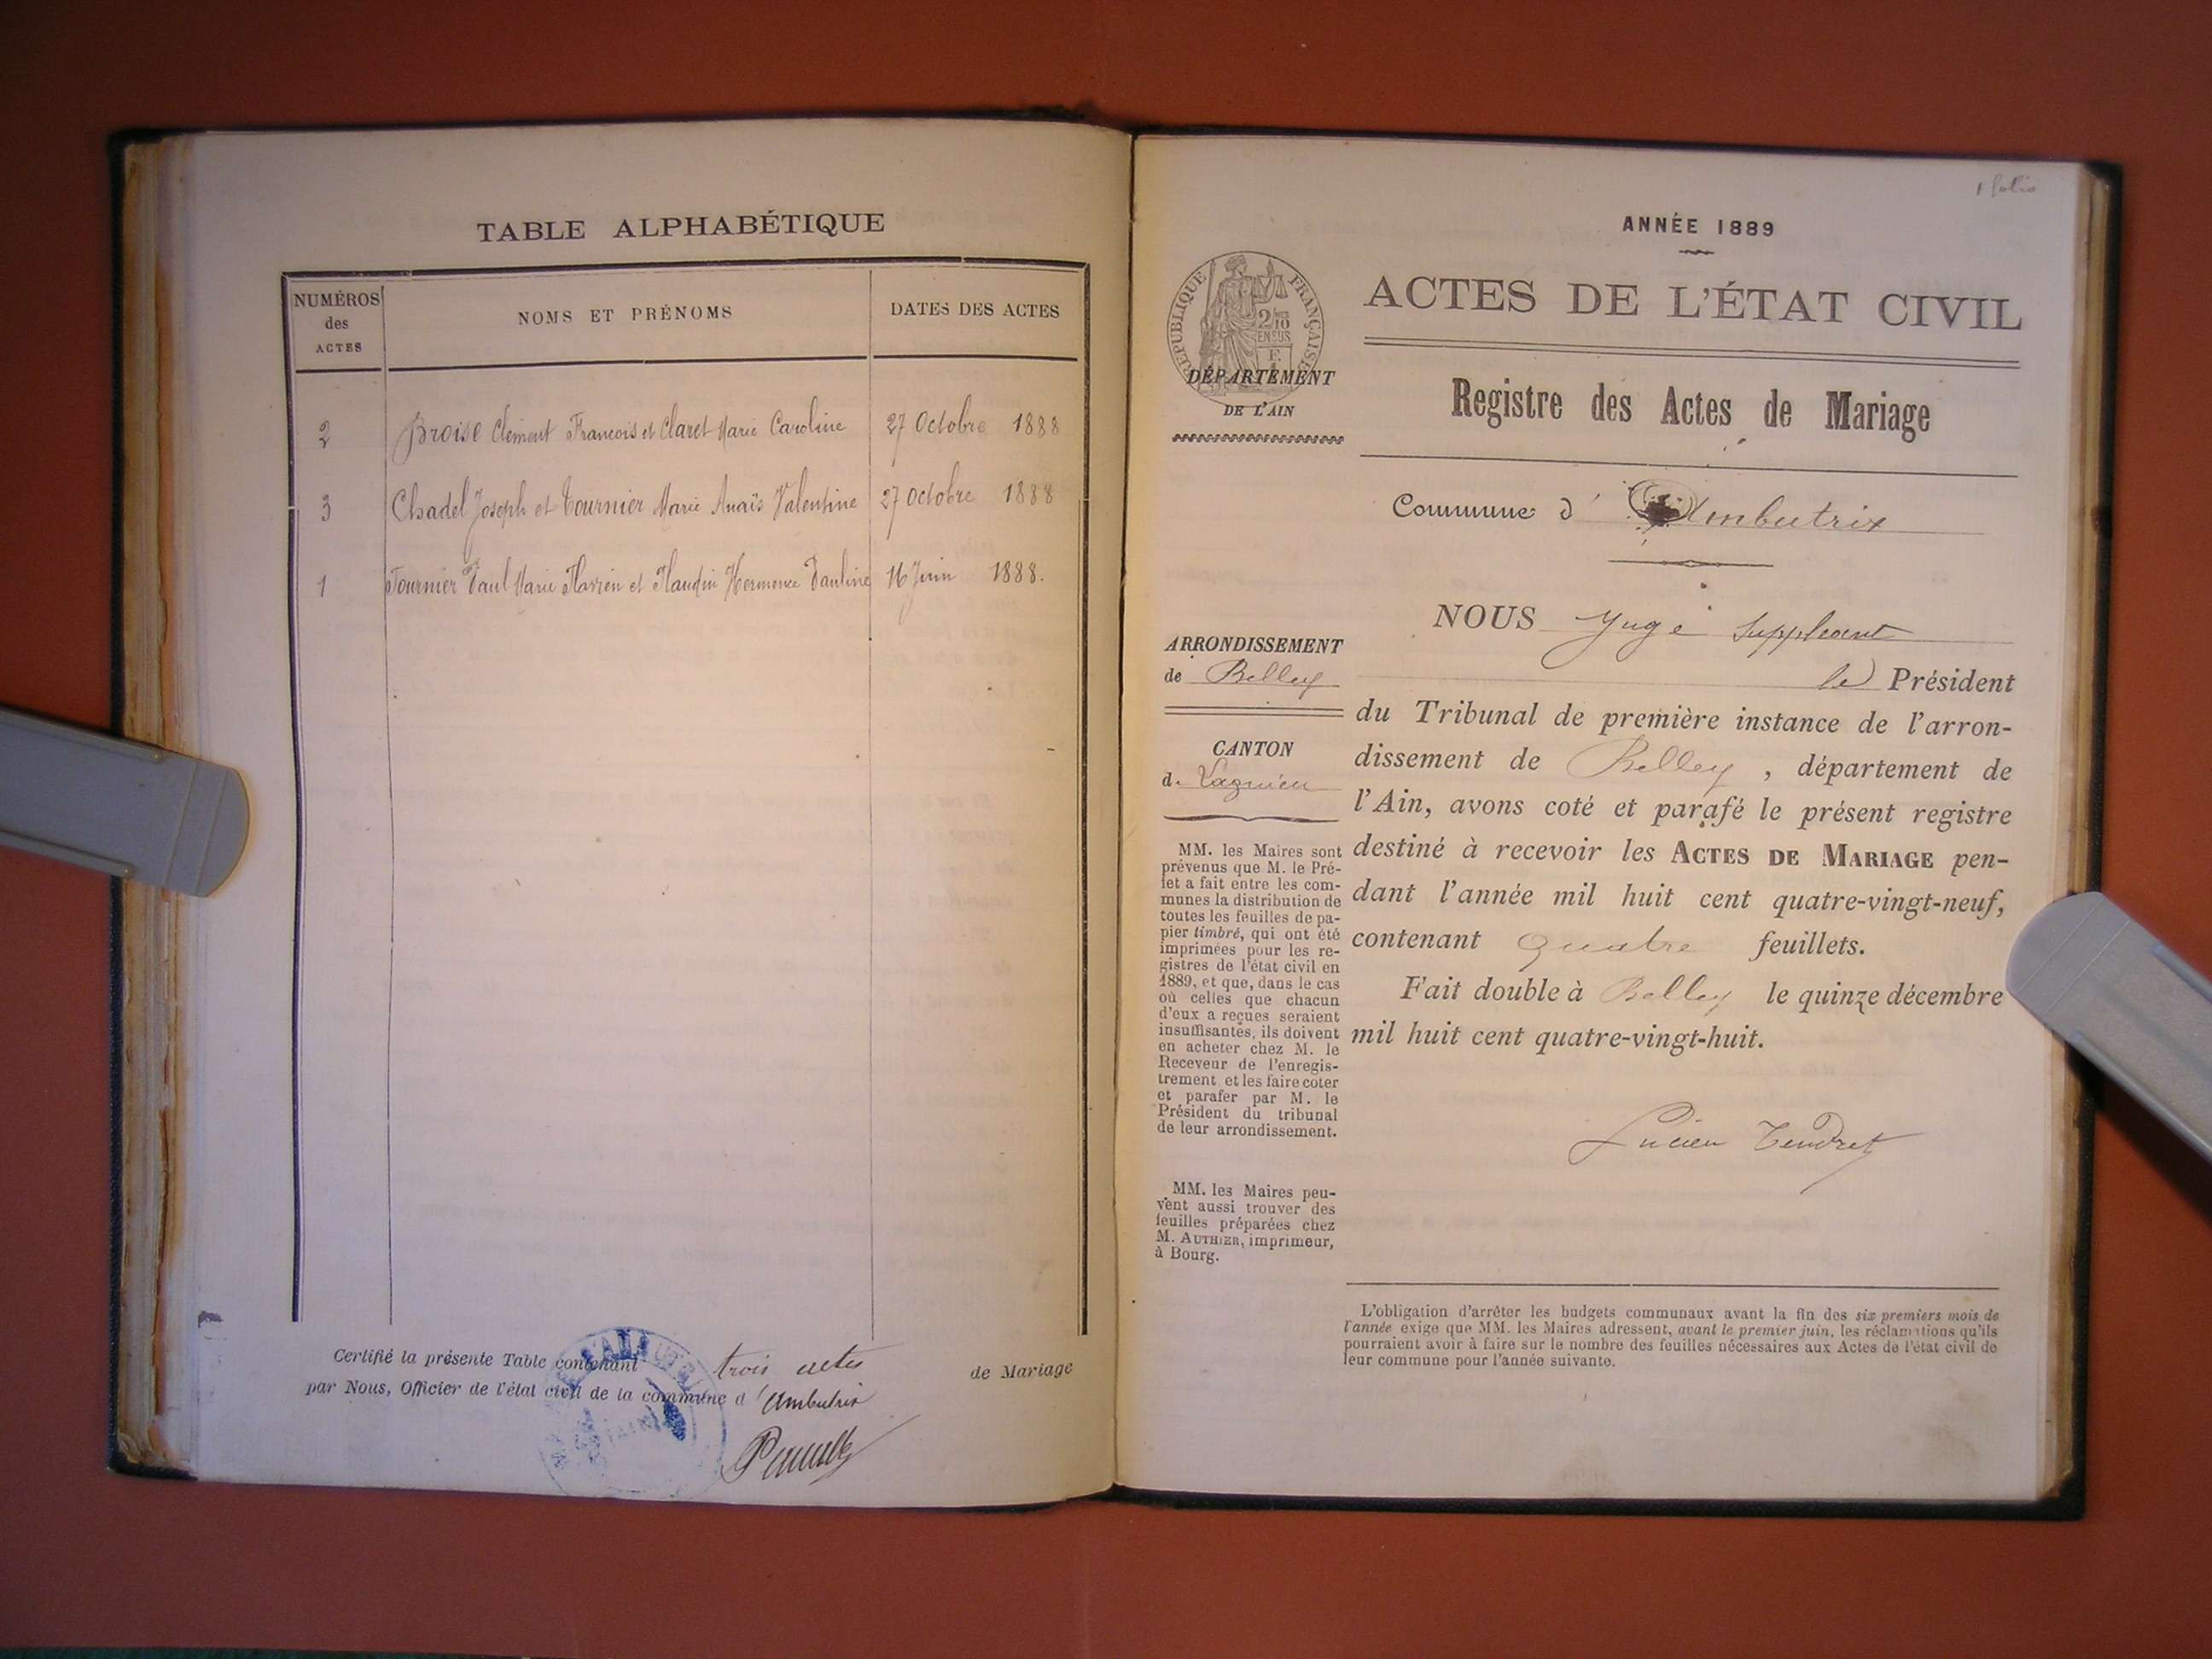 TABLE ALPHABÉTIQUE
NUMÉROS des ACTES
NOMS ET PRÉNOMS
DATES DES ACTES
2 Broise Clément Francois et Claret Marie Caroline 27 Octobre 1888
3 Chadel Joseph et Tournier Marie Anaïs Valentine 27 Octobre 1888
1 Tournier Paul Marie et Hermence Pauline 16 Juin 1888.
Certifié la présente Table contenant trois actes de Mariage
par Nous, Officier de l'état civil de la commune d'Ambutrix
1 folio
ANNÉE 1889
ACTES DE L'ÉTAT CIVIL
RÉPUBLIQUE FRANÇAISE
2/10 EN SUS
DÉPARTEMENT
DE L'AIN
Registre des Actes de Mariage
Commune d' Ambutrix
ARRONDISSEMENT
de Belley
CANTON
de Lagnieu
MM. les Maires sont
prévenus que M. le Pré-
fet a fait entre les com-
munes la distribution de
toutes les feuilles de pa-
pier timbré, qui ont été
imprimées pour les re-
gistres de l'état civil en
1889, et que, dans le cas
où celles que chacun
d'eux a reçues seraient
insuffisantes, ils doivent
en acheter chez M. le
Receveur de l'enregis-
trement et les faire coter
et parafer par M. le
Président du tribunal
de leur arrondissement.
MM. les Maires peu-
vent aussi trouver des
feuilles préparées chez
M. AUTHIER, imprimeur,
à Bourg.
NOUS Juge Suppleant
le Président
du Tribunal de première instance de l'arron-
dissement de Belley, département de
l'Ain, avons coté et parafé le présent registre
destiné à recevoir les ACTES DE MARIAGE pen-
dant l'année mil huit cent quatre-vingt-neuf,
contenant quatre feuillets.
Fait double à Belley le quinze décembre
mil huit cent quatre-vingt-huit.
Lucien Tendret
L'obligation d'arrêter les budgets communaux avant la fin des six premiers mois de
l'année exige que MM. les Maires adressent, avant le premier juin, les réclamations qu'ils
pourraient avoir à faire sur le nombre des feuilles nécessaires aux Actes de l'état civil de
leur commune pour l'année suivante.